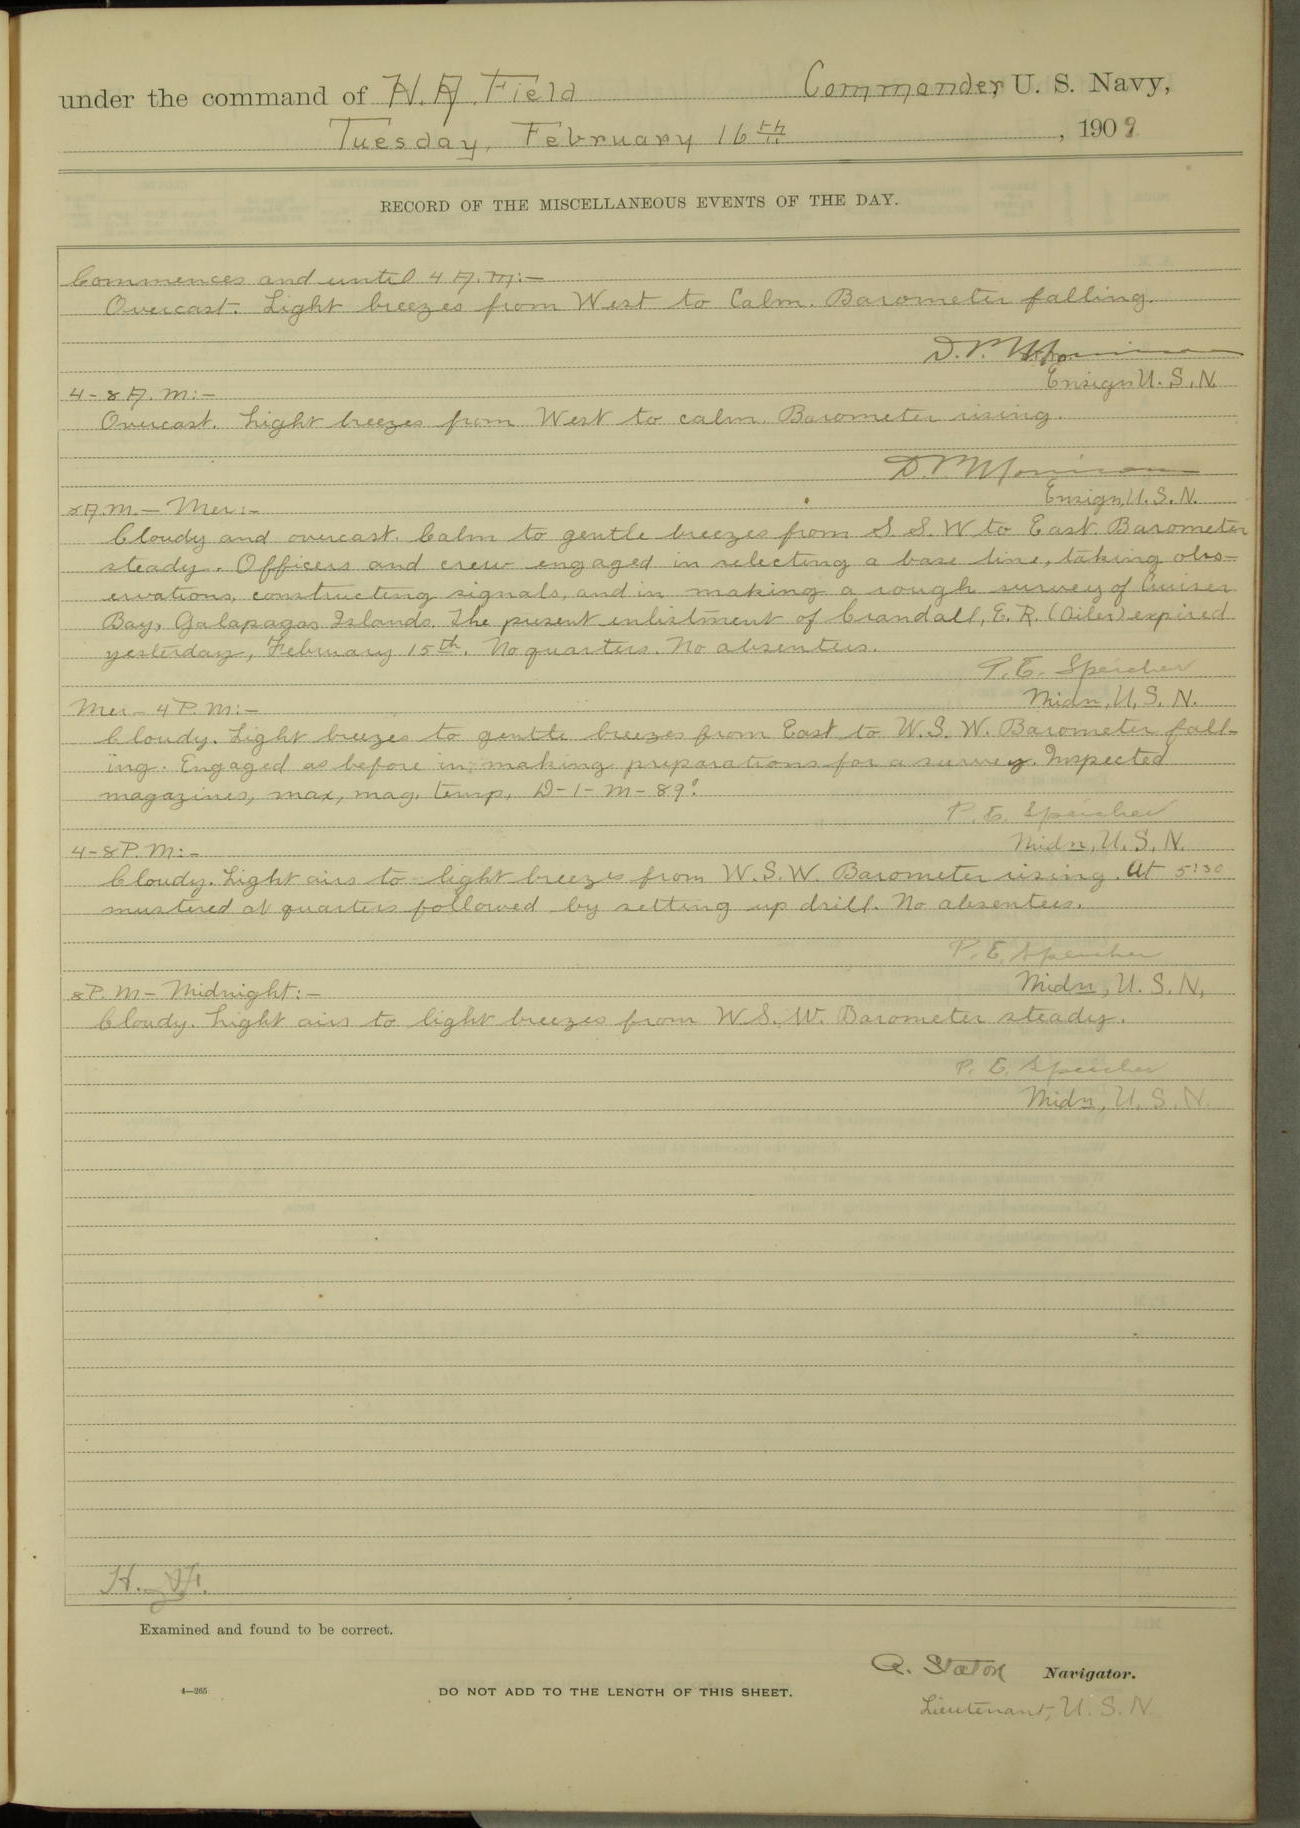 under the command of H. A. Field Commander, U. S. Navy,
Tuesday, February 16th, 1909
RECORD OF THE MISCELLANEOUS EVENTS OF THE DAY.
Commences and until 4 A.M:-
Overcast. Light breezes from West to Calm. Barometer falling.
D. P. Morrison
Ensign U. S. N.
4-8 A. M:-
Overcast. Light breezes from West to calm. Barometer rising.
D. P. Morrison
Ensign, U. S. N.
8 A.M. - Mer:-
Cloudy and overcast. Calm to gentle breezes from S. S. W to East. Barometer
steady. Officers and crew engaged in selecting a base line, taking obs-
ervations, constructing signals, and in making a rough survey of Cruiser
Bay, Galapagas Islands. The present enlistment of Crandall, E. R. (Oiler) expired
yesterday, February 15th. No quarters. No absentees.
P. E. Speicher
Midn, U. S. N.
Mer - 4 P. M:-
Cloudy. Light breezes to gentle breezes from East to W. S. W. Barometer fall-
ing. Engaged as before in making preparations for a survey. Inspected
magazines, max, mag. temp. D-1-M-89°.
P. E. Speicher
Midn, U. S. N.
4-8 P. M:-
Cloudy. Light airs to light breezes from W. S. W. Barometer rising. At 5:30
mustered at quarters followed by setting up drill. No absentees.
P. E. Speicher
Midn, U. S. N,
8 P. M - Midnight:-
Cloudy. Light airs to light breezes from W. S. W. Barometer steady.
P. E. Speicher
Midn, U. S. N.
Examined and found to be correct.
A. Staton Navigator.
4—265 DO NOT ADD TO THE LENGTH OF THIS SHEET.
Lieutenant, U. S. N.